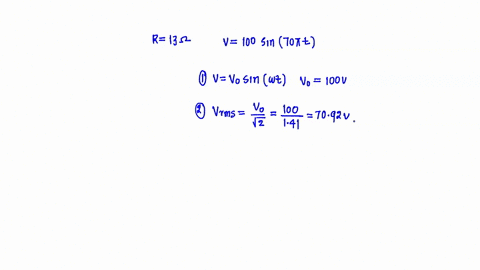 R = 13 Ω V = 100 sin (70πt)
① V = V₀ sin (ωt) V₀ = 100V
② Vrms = V₀/√2 = 100/1.41 = 70.92 V.